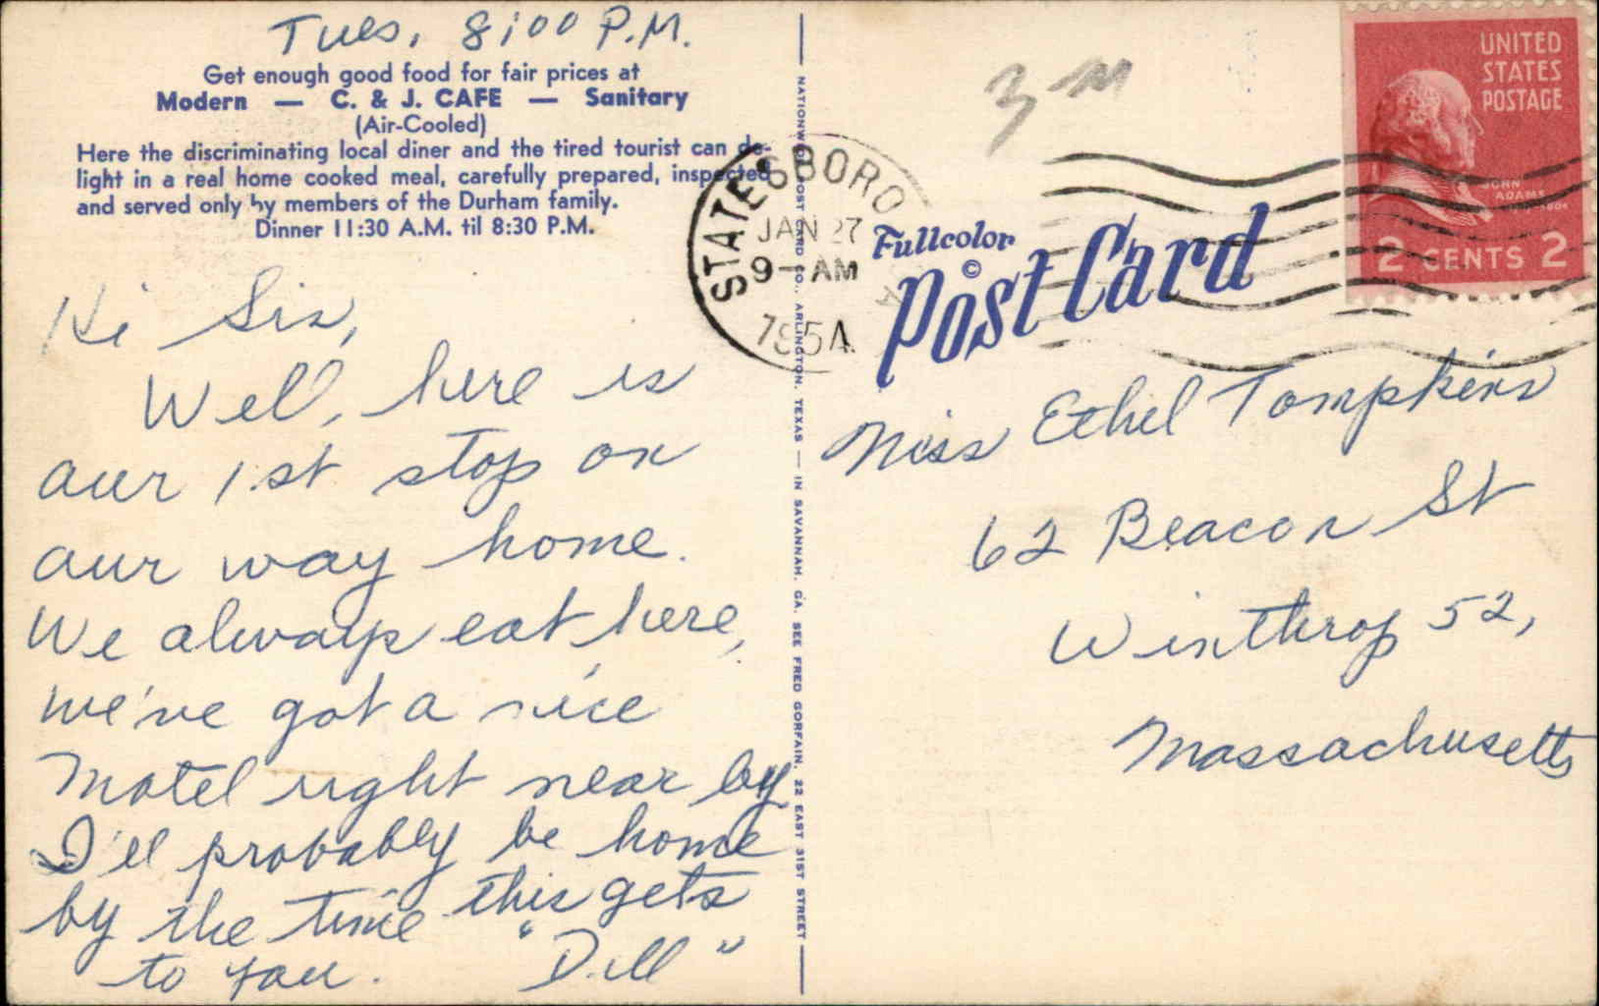 Tues, 8:00 P.M.
Get enough good food for fair prices at
Modern — C. & J. CAFE — Sanitary
(Air-Cooled)
Here the discriminating local diner and the tired tourist can de-
light in a real home cooked meal, carefully prepared, inspected
and served only by members of the Durham family.
Dinner 11:30 A.M. til 8:30 P.M.
Hi Sis,
Well, here is
our 1st stop on
our way home.
We always eat here,
we've got a nice
Motel right near by,
I'll probably be home
by the time this gets
to you. "Dill"
NATIONWIDE POST CARD CO., ARLINGTON, TEXAS — IN SAVANNAH, GA. SEE FRED GORFAIN, 22 EAST 31ST STREET
STATESBORO
JAN 27
9 — AM
1954
Fullcolor
Post Card
©
UNITED
STATES
POSTAGE
JOHN
ADAMS
2 CENTS 2
Miss Ethel Tompkins
62 Beacon St
Winthrop 52,
Massachusetts